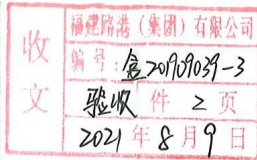 收文
福建路港（集团）有限公司
编号：含201909039-3
验收 件 2 页
2021年8月9日